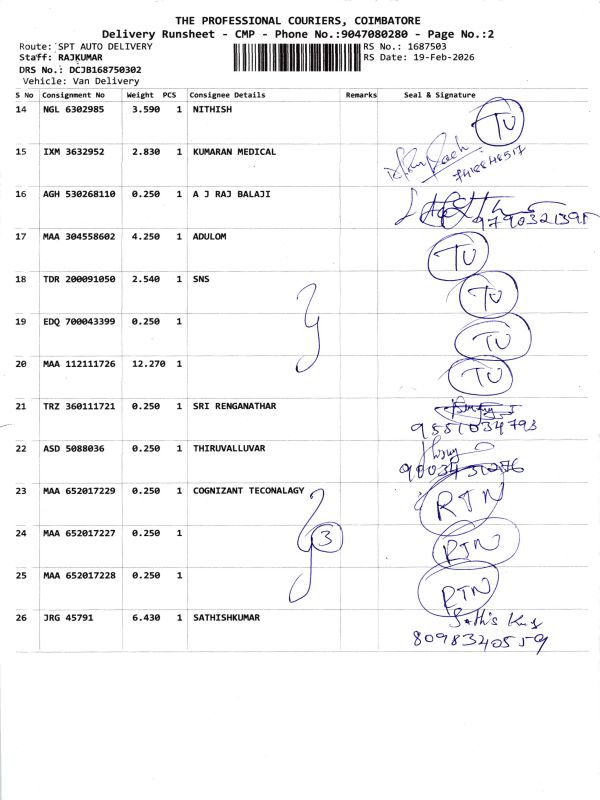 THE PROFESSIONAL COURIERS, COIMBATORE
Delivery Runsheet - CMP - Phone No.:9047080280 - Page No.:2
Route: SPT AUTO DELIVERY RS No.: 1687503
Staff: RAJKUMAR RS Date: 19-Feb-2026
DRS No.: DCJB168750302
Vehicle: Van Delivery
S No Consignment No Weight PCS Consignee Details Remarks Seal & Signature
14 NGL 6302985 3.590 1 NITHISH TU
15 IXM 3632952 2.830 1 KUMARAN MEDICAL
16 AGH 530268110 0.250 1 A J RAJ BALAJI
9790321395
17 MAA 304558602 4.250 1 ADULOM TU
18 TDR 200091050 2.540 1 SNS TU
19 EDQ 700043399 0.250 1 TU
20 MAA 112111726 12.270 1 TU
21 TRZ 360111721 0.250 1 SRI RENGANATHAR
9551034793
22 ASD 5088036 0.250 1 THIRUVALLUVAR
23 MAA 652017229 0.250 1 COGNIZANT TECONALAGY RTN
24 MAA 652017227 0.250 1 3 RTN
25 MAA 652017228 0.250 1 RTN
26 JRG 45791 6.430 1 SATHISHKUMAR
8098340559